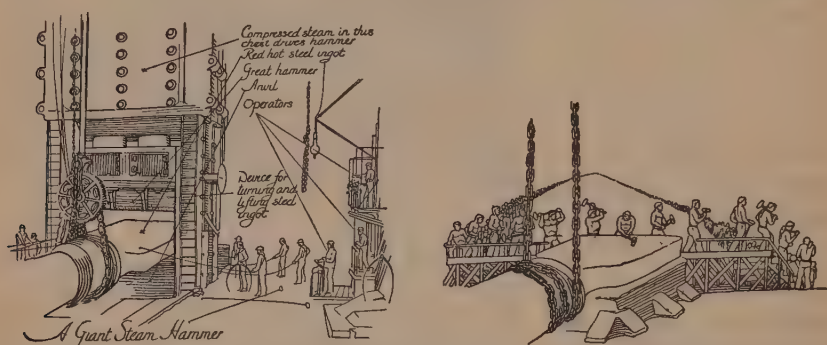 Compressed steam in this
chest drives hammer
Red hot steel ingot
Great hammer
Anvil
Operators
Device for
turning and
lifting steel
ingot
A Giant Steam Hammer